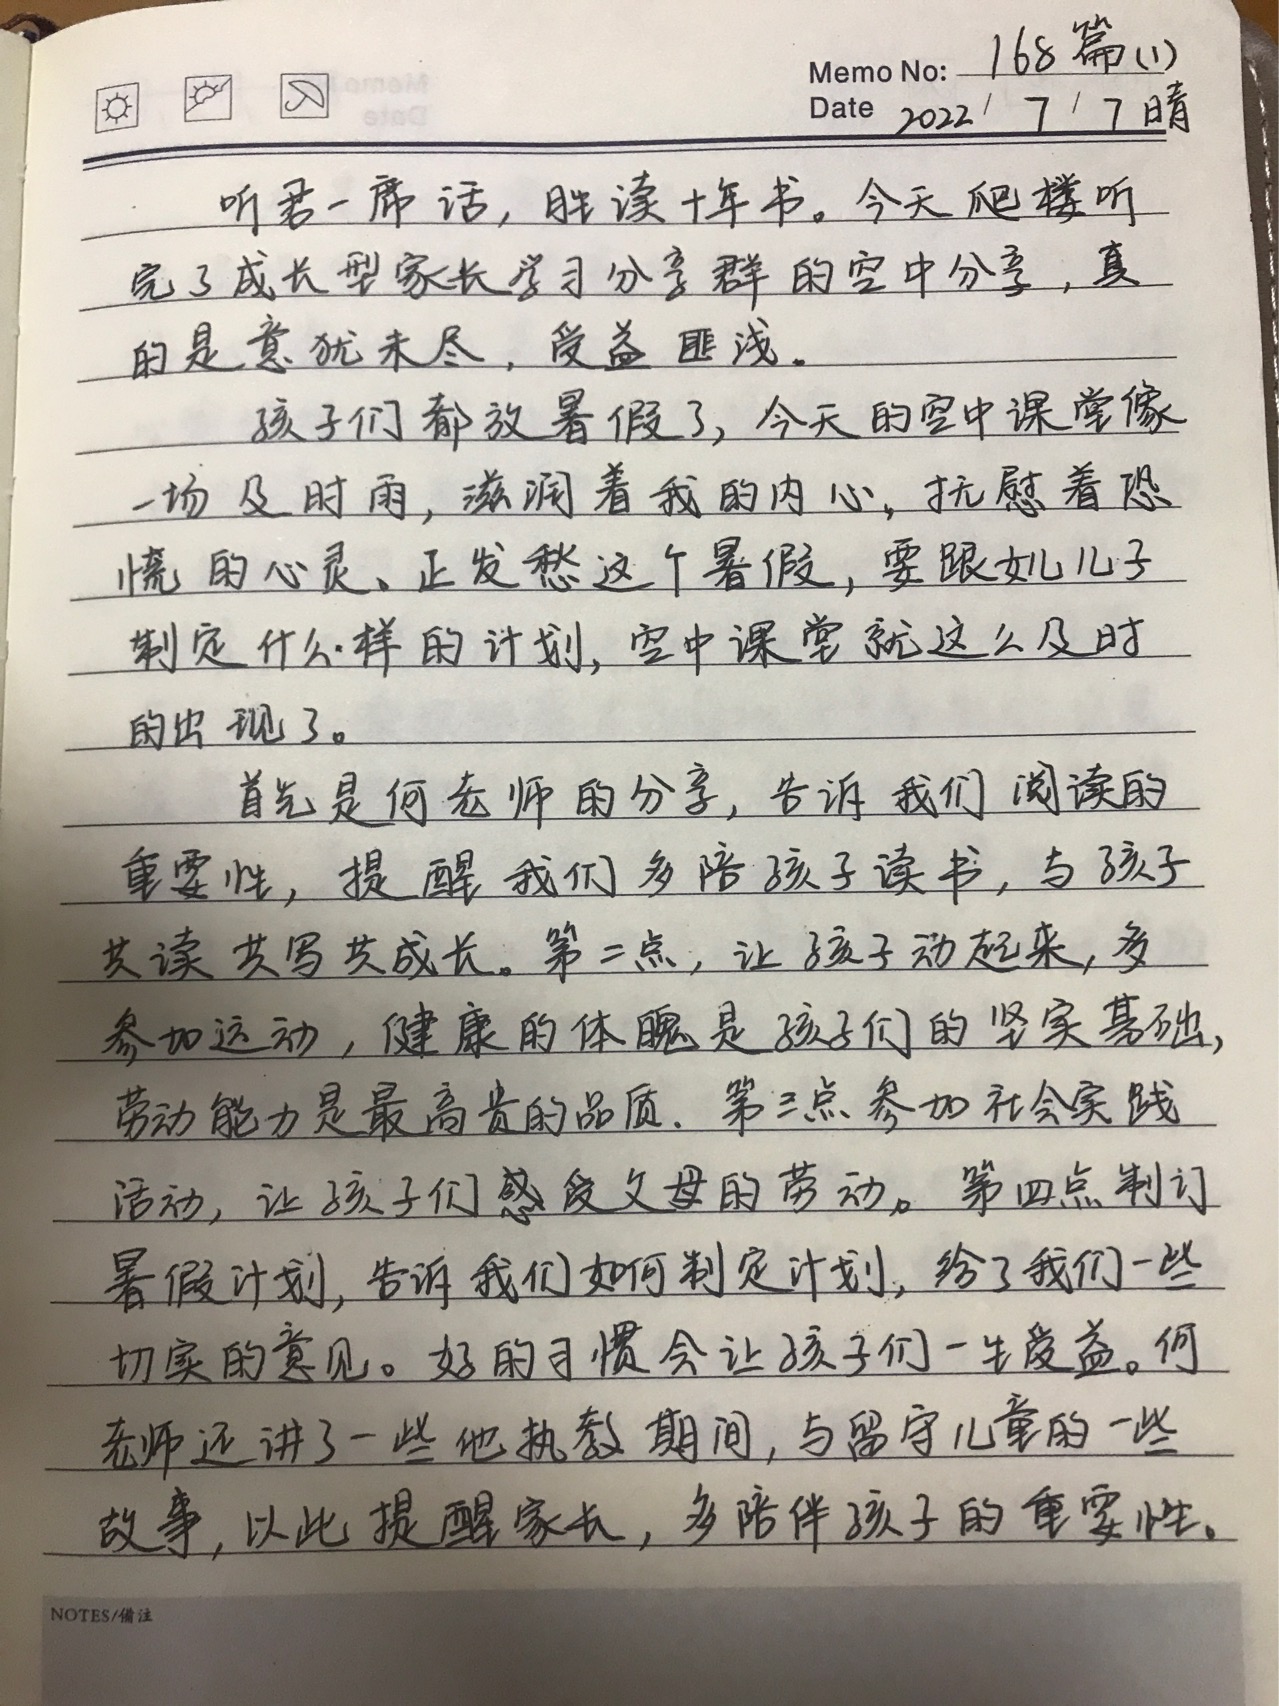 Memo No: 168篇(1)
Date 2022/7/7晴
听君一席话，胜读十年书。今天爬楼听
完了成长型家长学习分享群的空中分享，真
的是意犹未尽，受益匪浅。
孩子们都放暑假了，今天的空中课堂像
一场及时雨，滋润着我的内心，抚慰着恐
慌的心灵、正发愁这个暑假，要跟女儿儿子
制定什么样的计划，空中课堂就这么及时
的出现了。
首先是何老师的分享，告诉我们阅读的
重要性，提醒我们多陪孩子读书，与孩子
共读共写共成长。第二点，让孩子动起来，多
参加运动，健康的体魄是孩子们的坚实基础，
劳动能力是最高贵的品质．第三点参加社会实践
活动，让孩子们感受父母的劳动。第四点制订
暑假计划，告诉我们如何制定计划，给了我们一些
切实的意见。好的习惯会让孩子们一生受益。何
老师还讲了一些他执教期间，与留守儿童的一些
故事，以此提醒家长，多陪伴孩子的重要性。
NOTES/備注